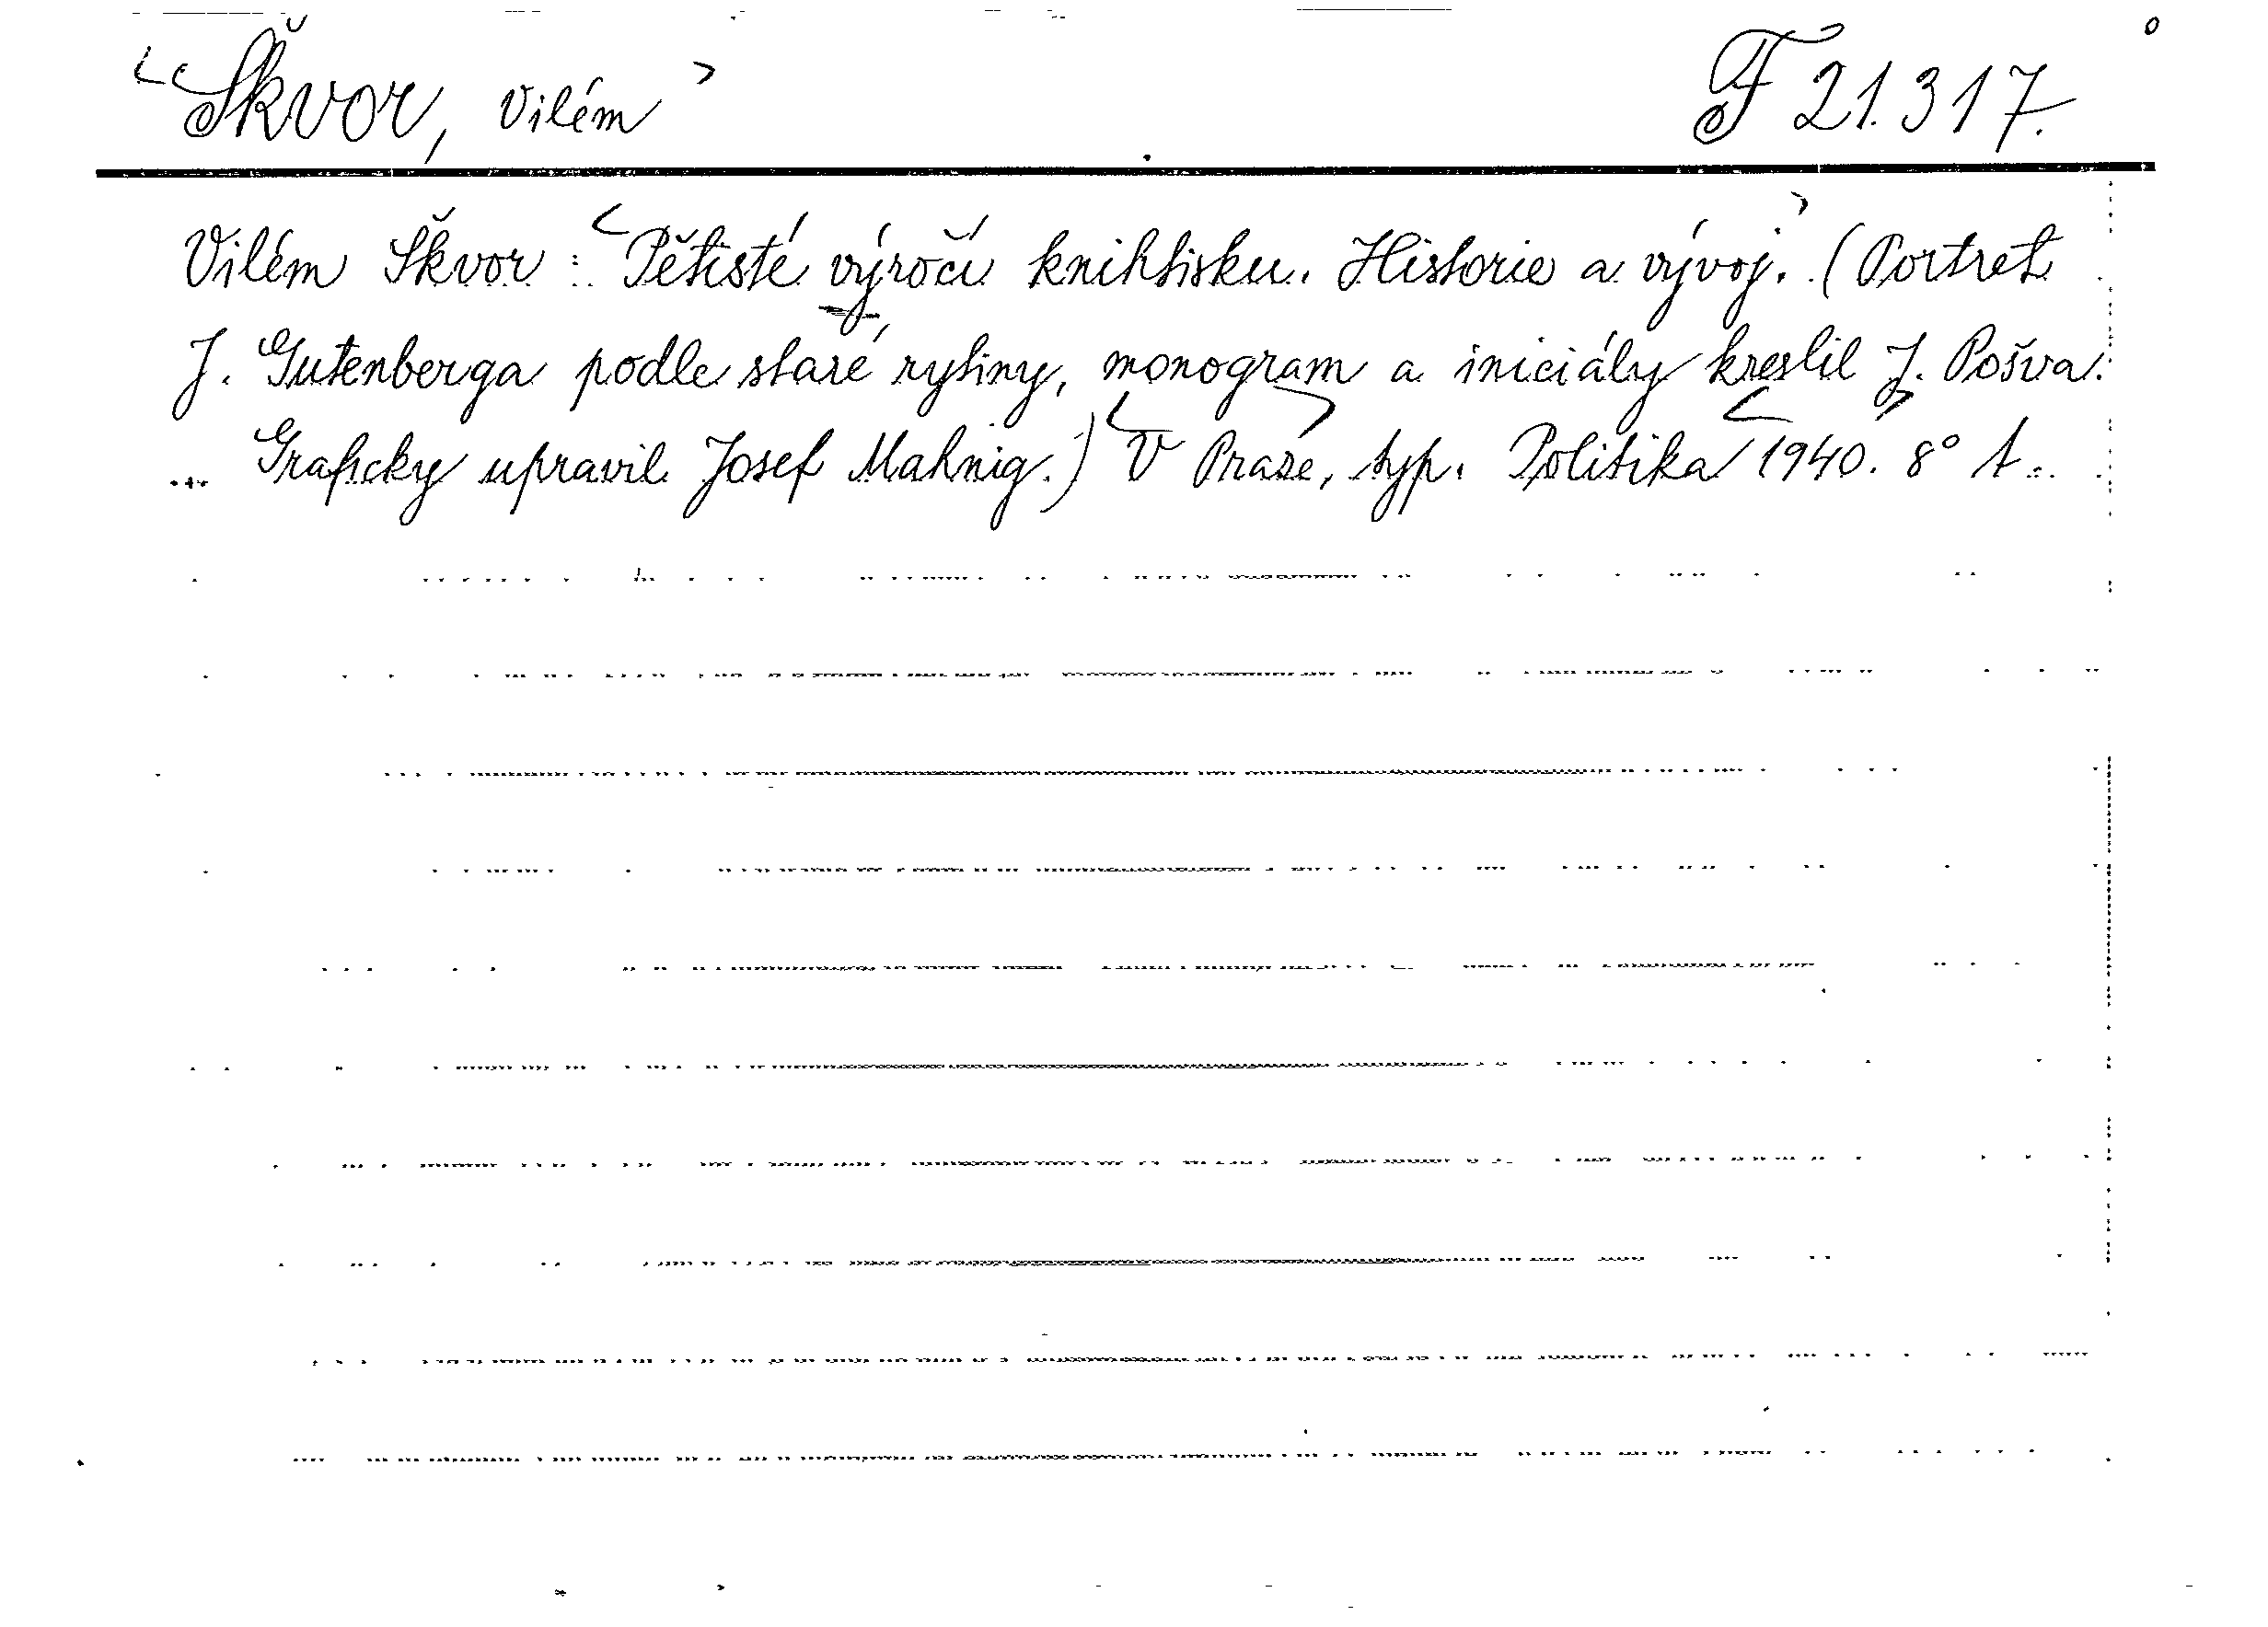 Škvor, Vilém F 21.317.
Vilém Škvor: Pětisté výročí knihtisku. Historie a vývoj. (Portret
J. Gutenberga podle staré rytiny, monogram a iniciály kreslil J. Pošva.
Graficky upravil Josef Mahnig.) V Praze, typ. Politika 1940. 8°